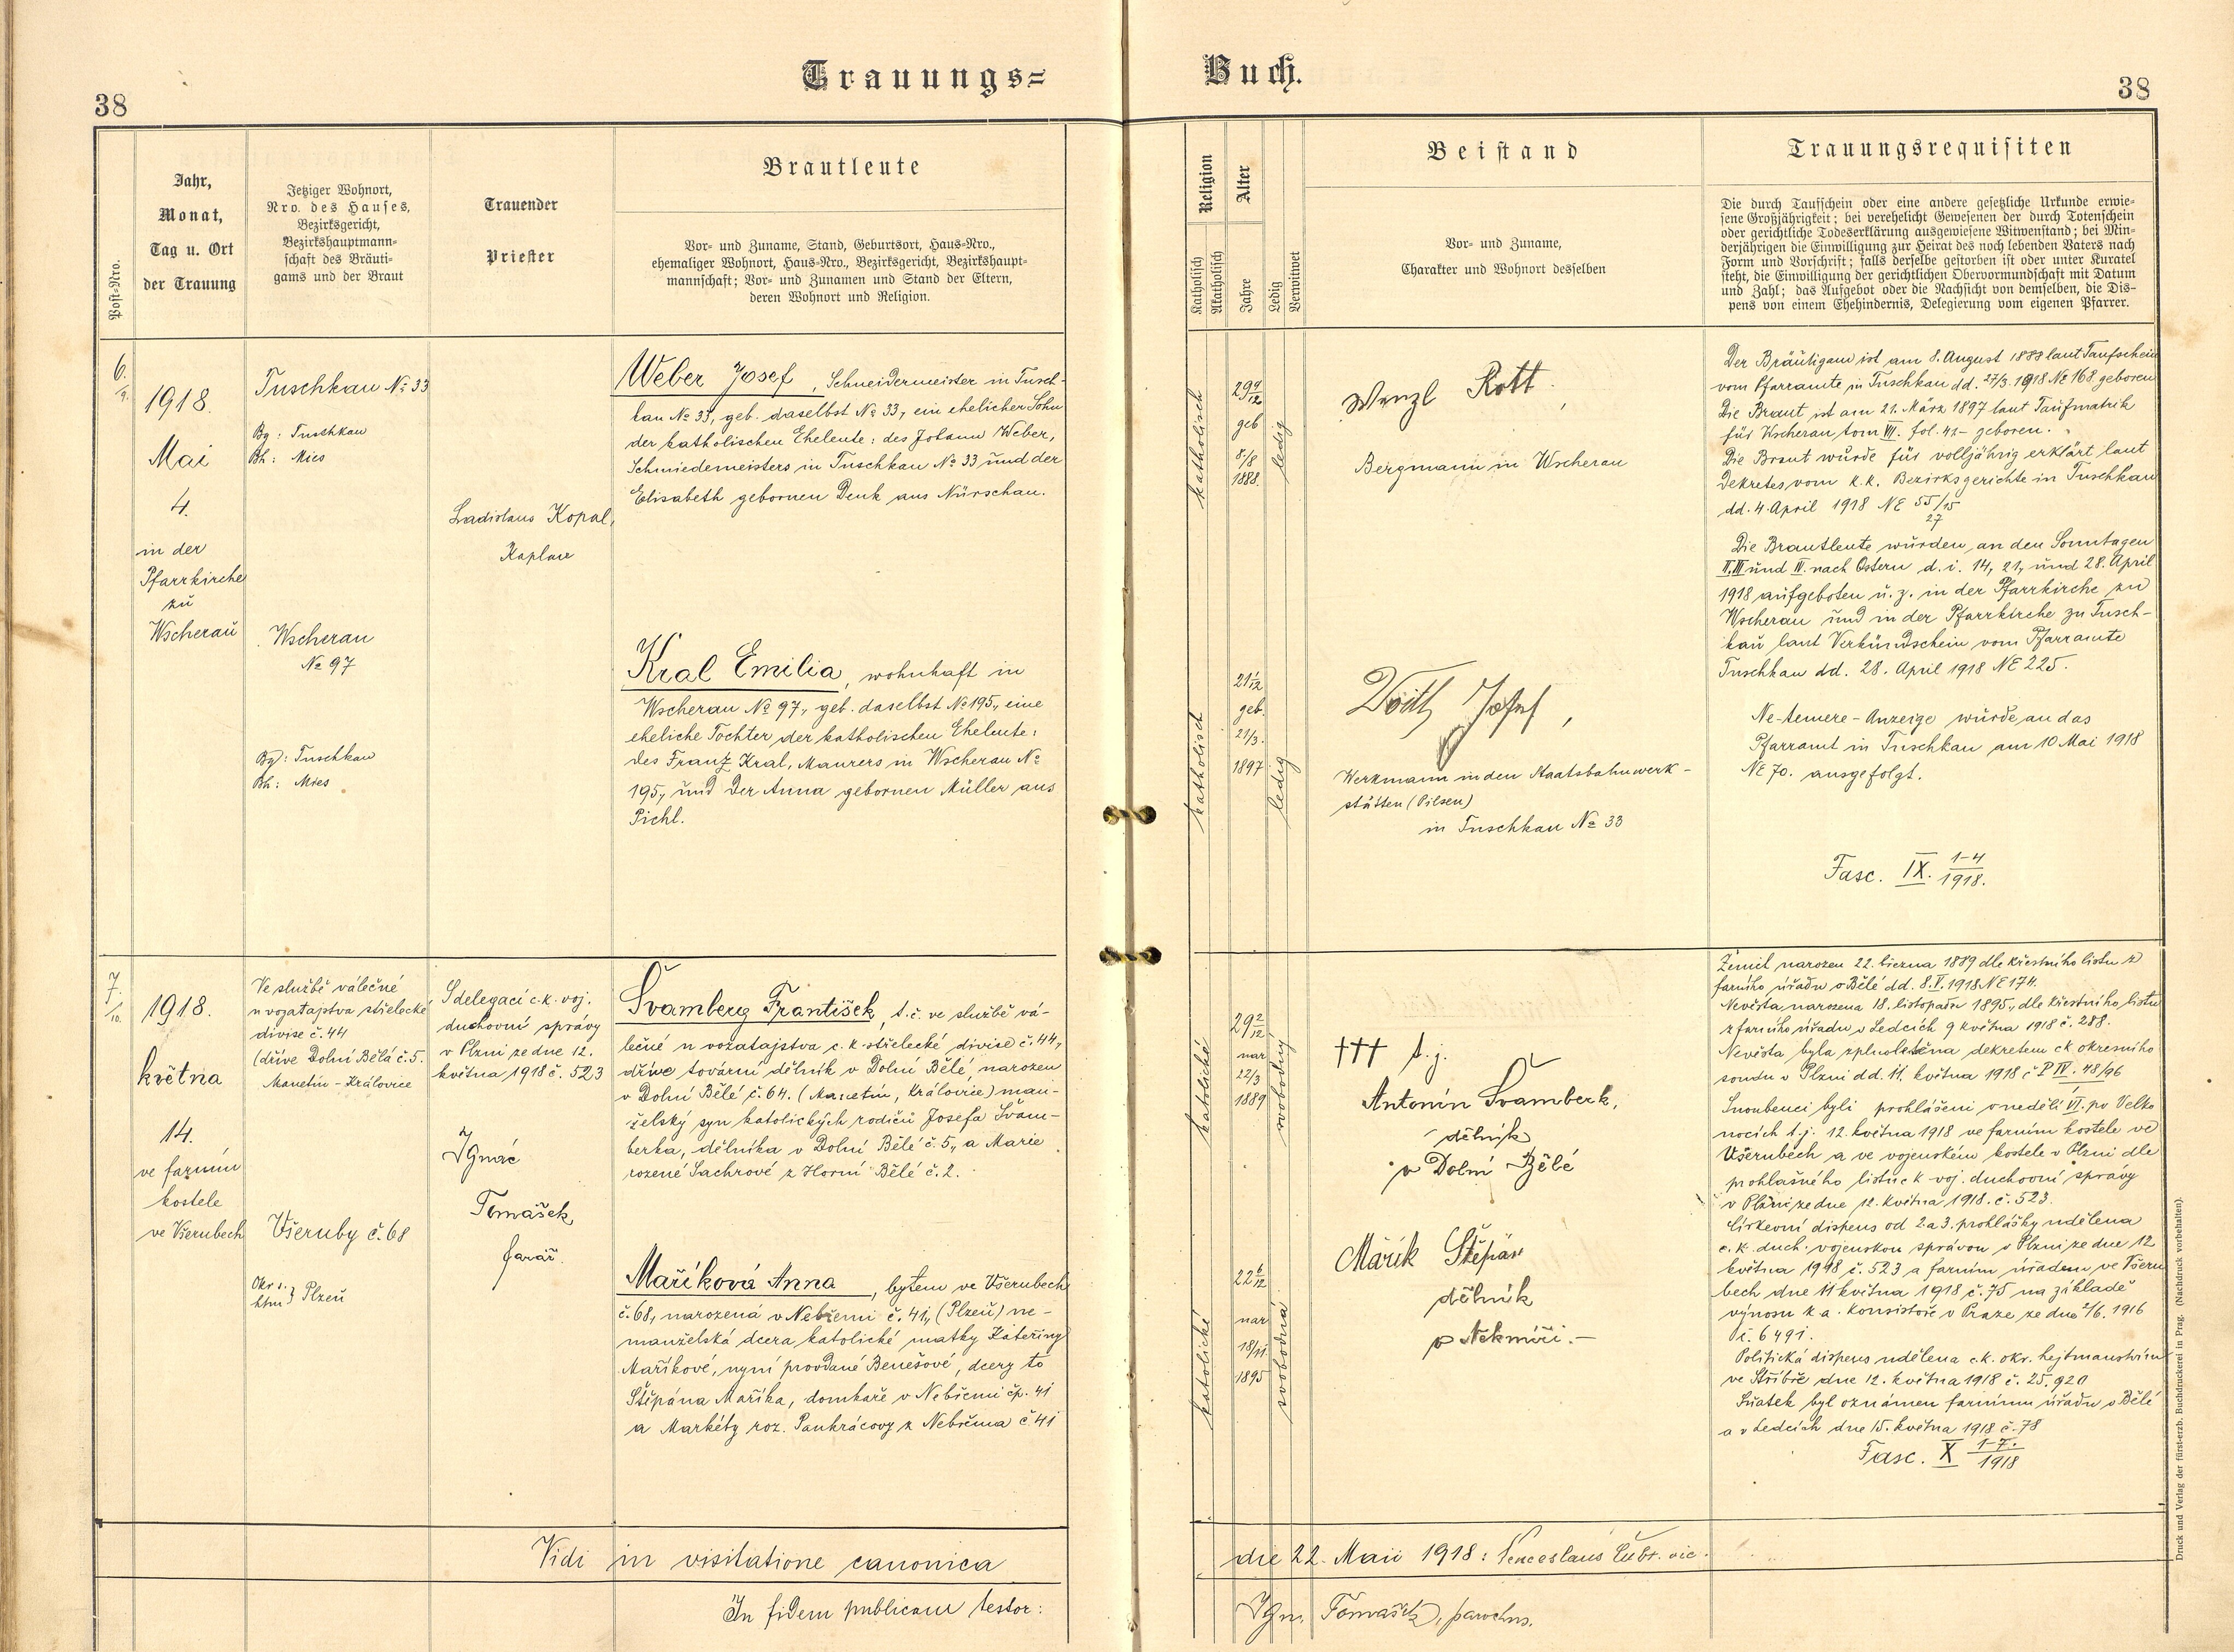 Trauungs=
Buch.
38
38
Post=Nro.
Jahr,
Monat,
Tag u. Ort
der Trauung
Jetziger Wohnort,
Nro. des Hauses,
Bezirksgericht,
Bezirkshauptmann=
schaft des Bräuti=
gams und der Braut
Trauender
Priester
Brautleute
Vor= und Zuname, Stand, Geburtsort, Haus=Nro.,
ehemaliger Wohnort, Haus=Nro., Bezirksgericht, Bezirkshaupt=
mannschaft; Vor= und Zunamen und Stand der Eltern,
deren Wohnort und Religion.
Religion
Katholisch
Akatholisch
Alter
Jahre
Ledig
Verwitwet
Beistand
Vor= und Zuname,
Charakter und Wohnort desselben
Trauungsrequisiten
Die durch Taufschein oder eine andere gesetzliche Urkunde erwie=
sene Großjährigkeit; bei verehelicht Gewesenen der durch Totenschein
oder gerichtliche Todeserklärung ausgewiesene Witwenstand; bei Min=
derjährigen die Einwilligung zur Heirat des noch lebenden Vaters nach
Form und Vorschrift; falls derselbe gestorben ist oder unter Kuratel
steht, die Einwilligung der gerichtlichen Obervormundschaft mit Datum
und Zahl; das Aufgebot oder die Nachsicht von demselben, die Dis=
pens von einem Ehehindernis, Delegierung vom eigenen Pfarrer.
6.
/9.
1918.
Mai
4.
in der
Pfarrkirche
zu
Wscherau
Tuschkau No 33
Bg: Tuschkau
Bh: Mies
Wscherau
No 97
Bg: Tuschkau
Bh: Mies
Ladislaus Kopal,
Kaplan
Weber Josef, Schneidermeister in Tusch-
kau No 33, geb. daselbst No 33, ein ehelicher Sohn
der katholischen Eheleute: des Johann Weber,
Schmiedemeisters in Tuschkau No 33 und der
Elisabeth gebornen Denk aus Nürschau.
Kral Emilia, wohnhaft in
Wscherau No 97, geb. daselbst No 195, eine
eheliche Tochter der katholischen Eheleute:
des Franz Kral, Maurers in Wscherau No
195, und der Anna gebornen Müller aus
Pichl.
katholisch
29 9/12
geb
8/8
1888.
ledig
katholisch
21 1/12
geb.
21/3.
1897
ledig
Wenzl Rott,
Bergmann in Wscherau
Josef,
Werkmann in den Staatsbahnwerk-
stätten (Pilsen)
in Tuschkau No 33
Der Bräutigam ist am 8. August 1888 laut Taufschein
vom Pfarramte in Tuschkau dd. 27/3. 1918 NE 168 geboren
Die Braut ist am 21. März 1897 laut Taufmatrik
für Wscherau tom VII. fol. 42- geboren.
Die Braut wurde für volljährig erklärt laut
Dekretes vom k.k. Bezirksgerichte in Tuschkau
dd. 4. April 1918 NE 55/15
27
Die Brautleute wurden an den Sonntagen
II. III und IV. nach Ostern d. i. 14, 21, und 28. April
1918 aufgeboten u. z. in der Pfarrkirche zu
Wscherau und in der Pfarrkirche zu Tusch-
kau laut Verkündschein vom Pfarramte
Tuschkau dd. 28. April 1918 NE 225.
Ne-temere-Anzeige wurde an das
Pfarramt in Tuschkau am 10 Mai 1918
NE 70. ausgefolgt.
Fasc. IX. 1-4/1918.
7.
/10.
1918.
května
14.
ve farním
kostele
ve Všerubech
Ve službě válečné
u vozatajstva střelecké
divise č. 44
(dříve Dolní Bělá č. 5.
Manetín-Královice
Všeruby č. 68
Okr s.
htm } Plzeň
S delegací c.k. voj.
duchovní správy
v Plzni ze dne 12.
května 1918 č. 523
Ignác
Tomášek,
farář.
Švamberg František, t.č. ve službě vá-
lečné u vozatajstva c. k. střelecké divise č. 44,
dříve tovární dělník v Dolní Bělé, narozen
v Dolní Bělé č. 64. (Manetín, Královice) man-
želský syn katolických rodičů Josefa Švam-
berka, dělníka v Dolní Bělé č. 5, a Marie
rozené Sachrové z Horní Bělé č. 2.
Maříková Anna, bytem ve Všerubech
č. 68, narozená v Nebřemi č. 41, (Plzeň) ne-
manželská dcera katolické matky Kateřiny
Maříkové, nyní provdané Benešové, dcery to
Štěpána Maříka, domkaře v Nebřemi čp. 41
a Markéty roz. Pankrácovy z Nebřema č 41
katolické
29 2/12
nar
22/3
1889
svobodný
katolické
22 6/12
nar
18/11.
1895
svobodná
††† t.j.
Antonín Švamberk,
dělník
v Dolní Bělé
Mařík Štěpán
dělník
v Nekmíři.-
Ženich narozen 22. března 1889 dle křestního listu z
farního úřadu v Bělé dd. 8. V. 1918 NE 174.
Nevěsta narozena 18. listopadu 1895, dle křestního listu
z farního úřadu v Ledcích 9 května 1918 č. 288.
Nevěsta byla zplnoletěna dekretem ck okresního
soudu v Plzni dd. 11. května 1918 č P IV. 48/96
Snoubenci byli prohlášeni v neděli VI. po Velko
nocích t.j. 12. května 1918 ve farním kostele ve
Všerubech a ve vojenském kostele v Plzni dle
prohlašného listu c k voj. duchovní správy
v Plzni ze dne 12. května 1918. č. 523.
Církevní dispens od 2. a 3. prohlášky udělena
c. k. duch. vojenskou správou v Plzni ze dne 12
května 1918 č. 523 a farním úřadem ve Všeru
bech dne 11 května 1918 č. 75 na základě
výnosu k a. konsistoře v Praze ze dne /6. 1916
č. 6491.
Politická dispens udělena c.k. okr. hejtmanstvím
ve Stříbře dne 12. května 1918 č. 25.920
Sňatek byl oznámen farnímu úřadu v Bělé
a v Ledcích dne 15. května 1918 č. 78
Fasc. X 1-7./1918
Vidi in visitatione canonica
die 22. Maii 1918: Venceslaus vic.
In fidem publicam testor:
Ign. Tomášek, parochus.
Druck und Verlag der fürst-erzb. Buchdruckerei in Prag. (Nachdruck vorbehalten).